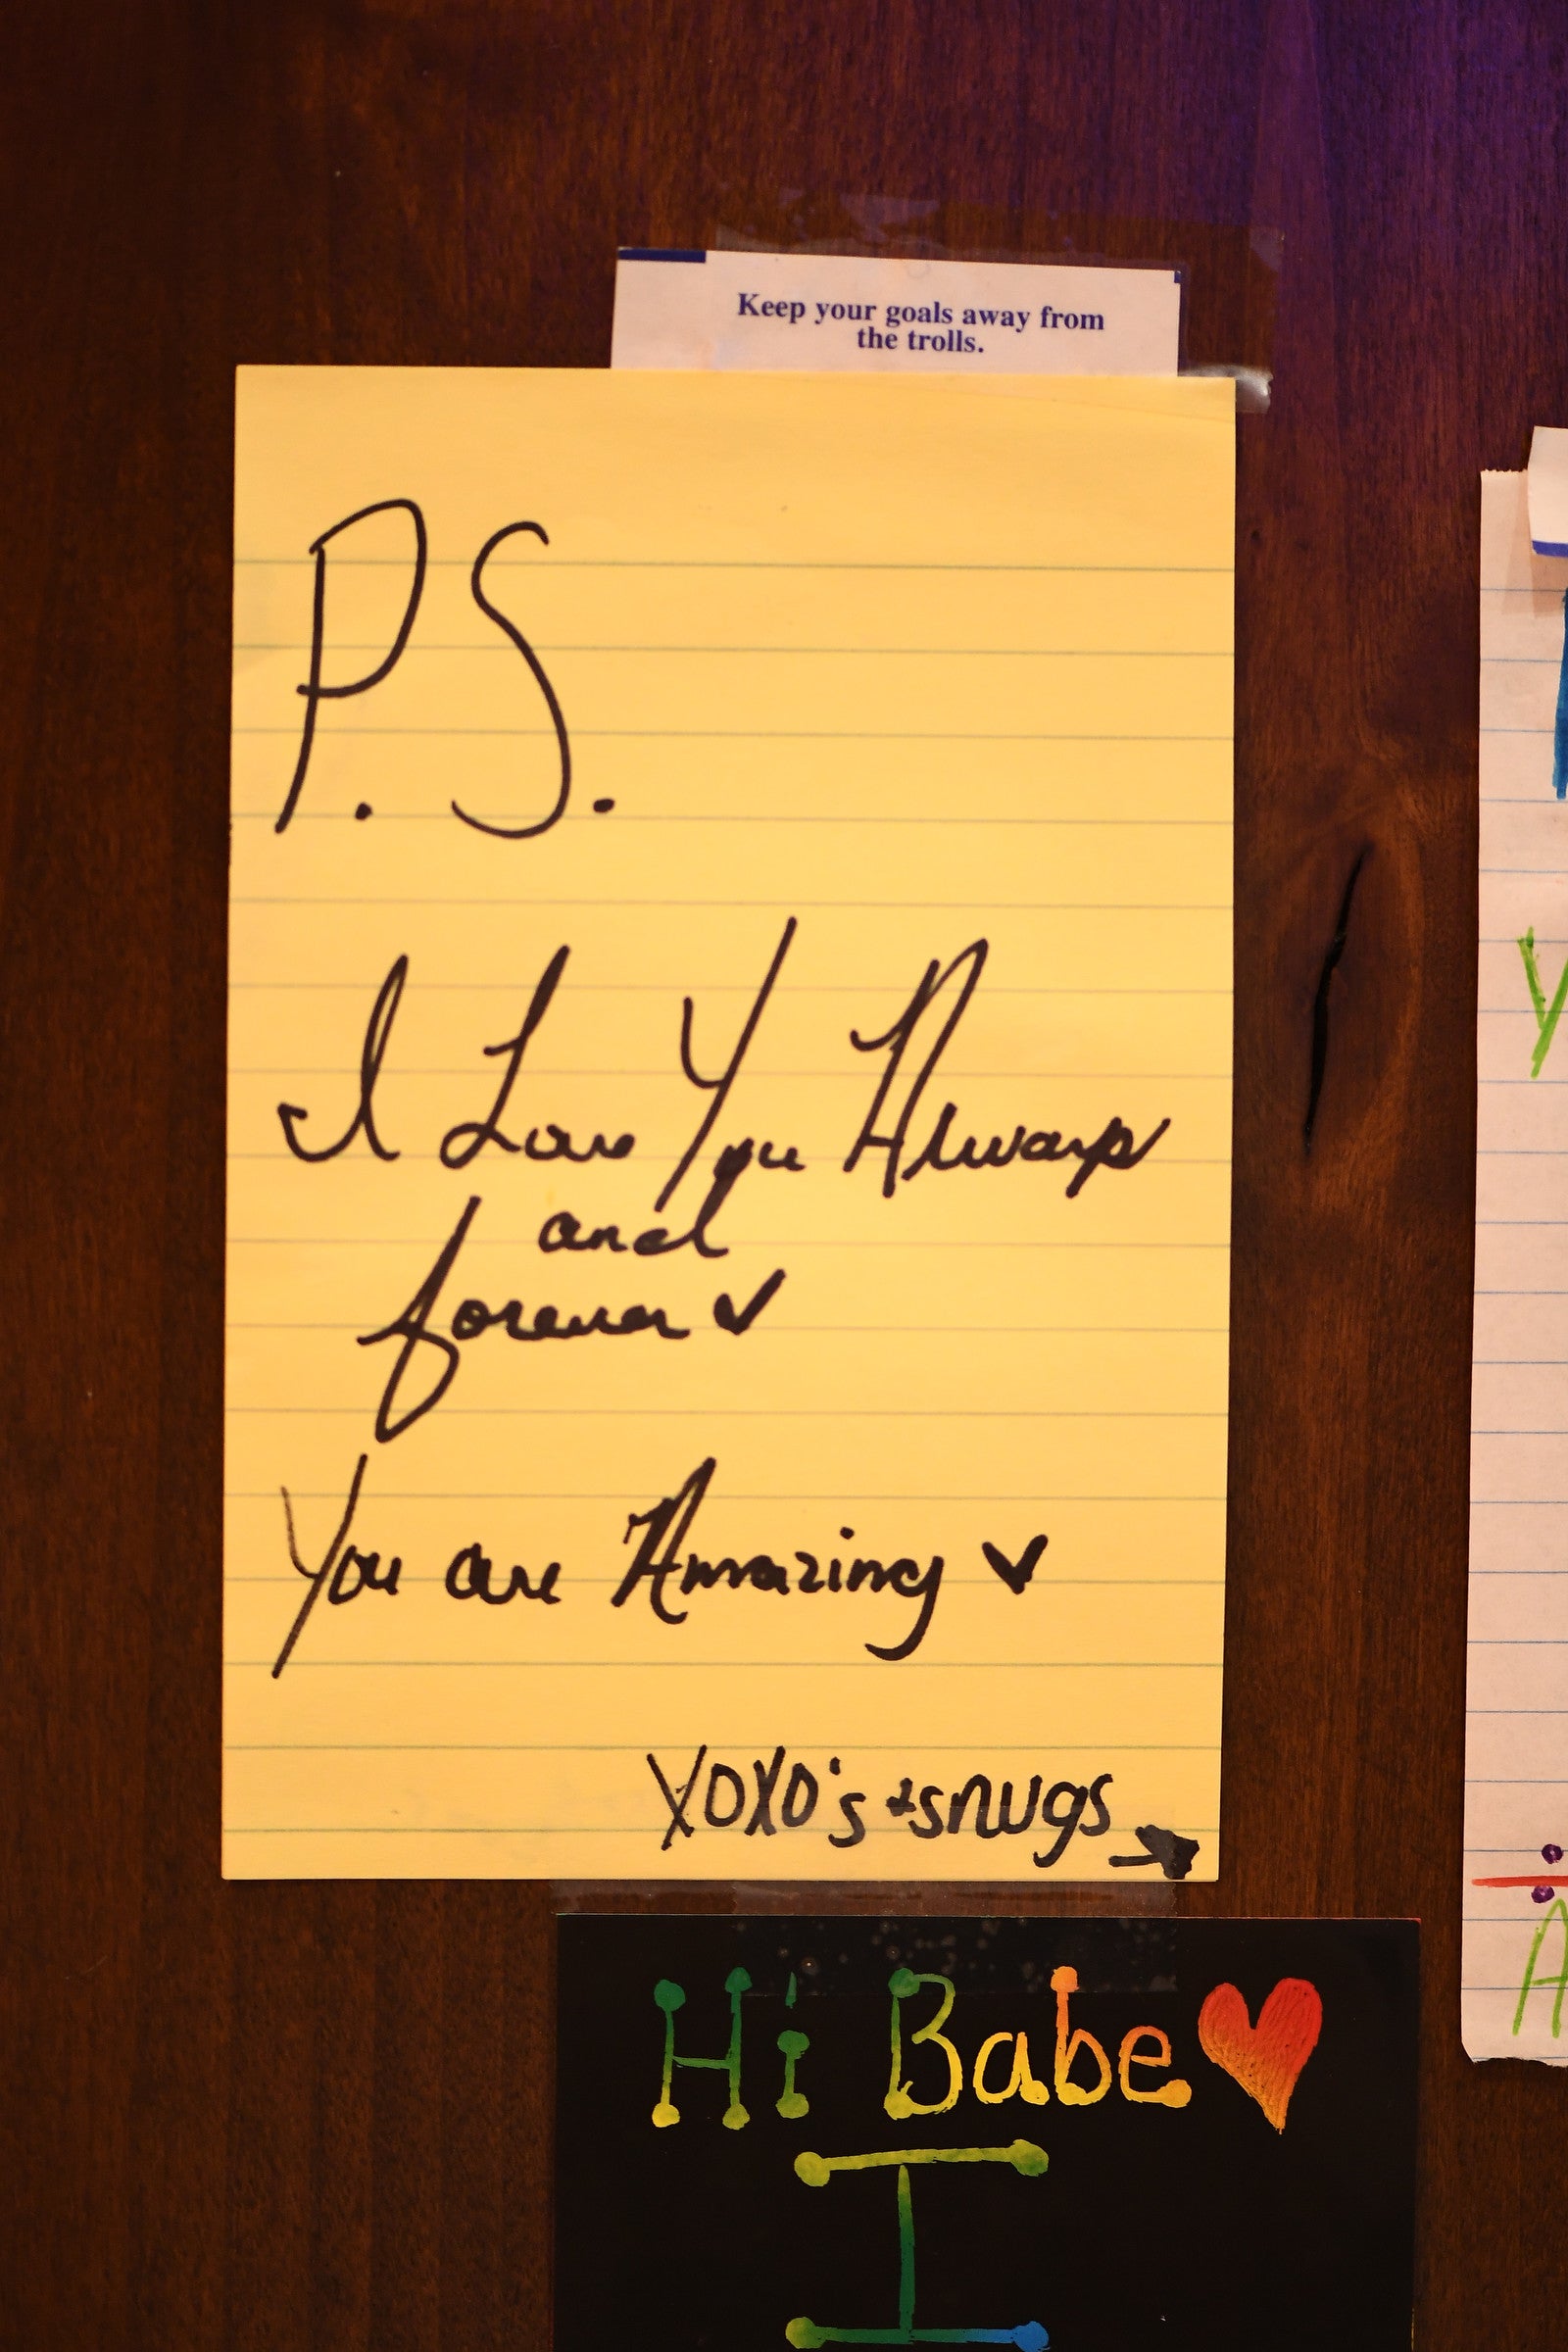 Keep your goals away from
the trolls.
P.S.
I Love You Always
and
forever
You are Amazing
XOXO's + snugs
Hi Babe
I
Y
A